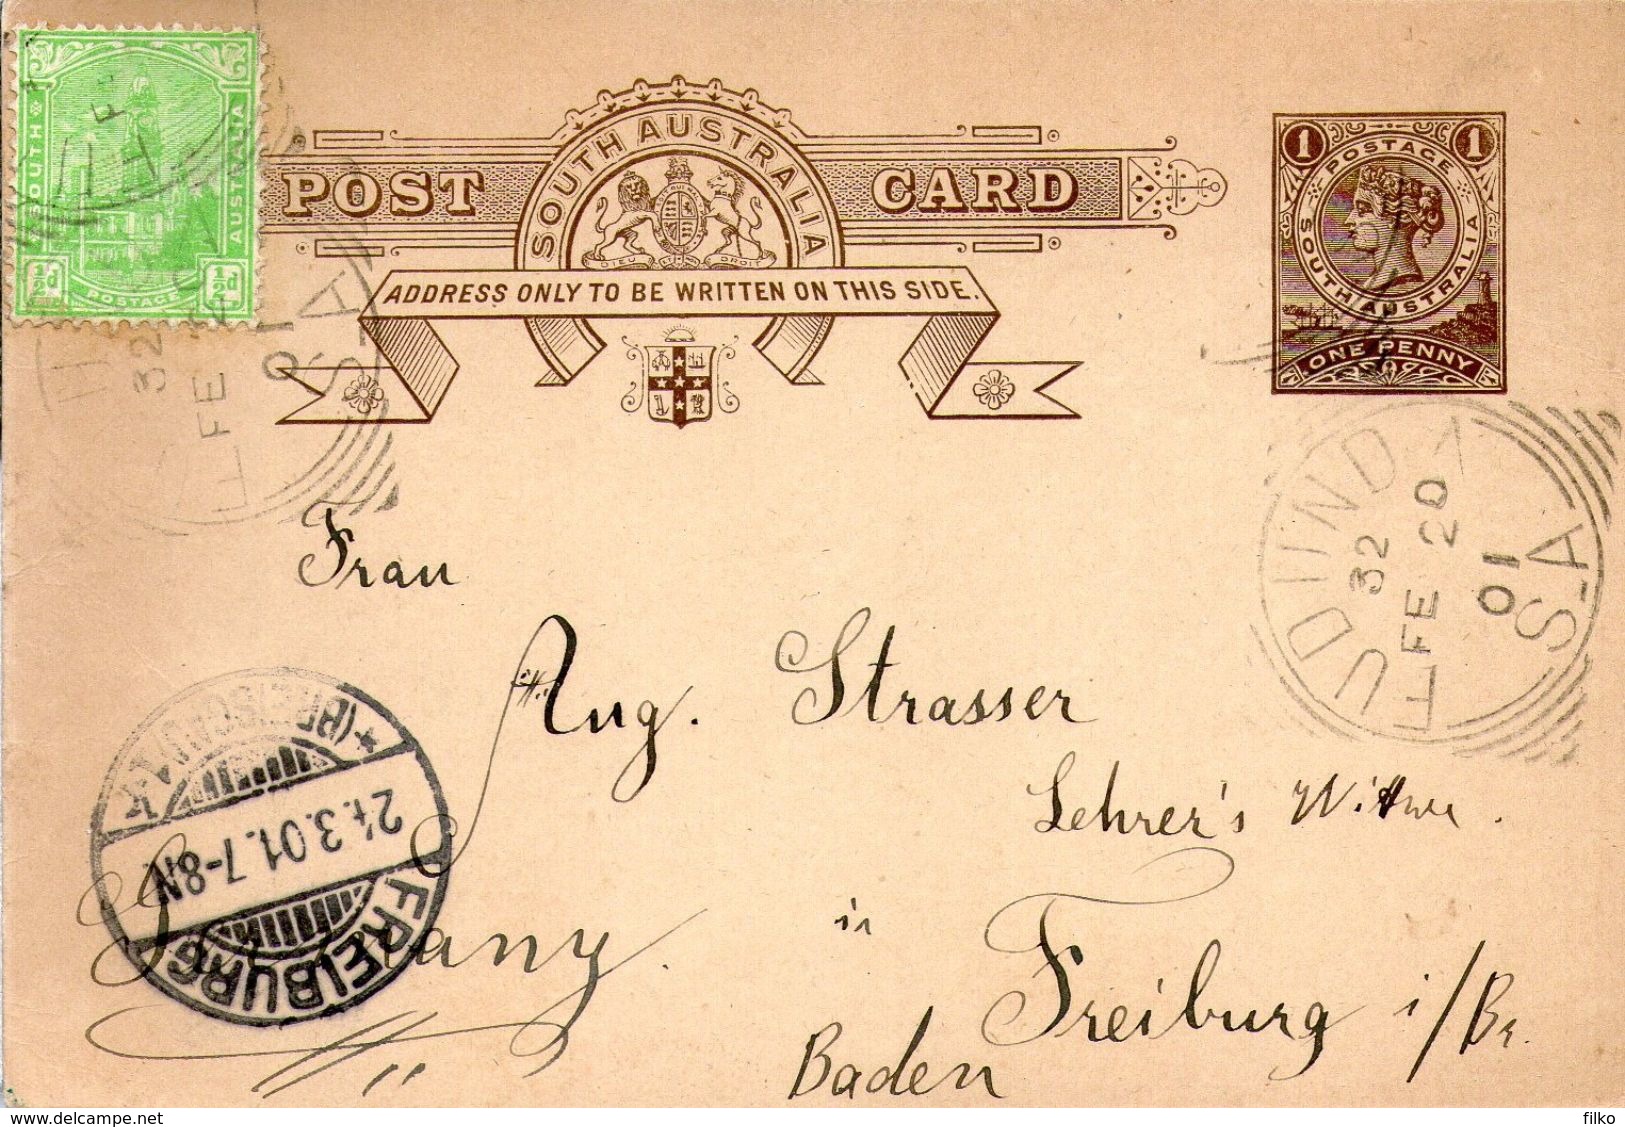 SOUTH AUSTRALIA
POSTAGE
½d ½d
POST CARD
SOUTH AUSTRALIA
DIEU ET MON DROIT
ADDRESS ONLY TO BE WRITTEN ON THIS SIDE.
1 POSTAGE 1
SOUTH AUSTRALIA
ONE PENNY
32
FE
01
S-A
UDIIND
32
FE 20
01
S-A
Frau
Aug. Strasser
Lehrer's Wittwe.
in
Freiburg i/Br.
Baden
Germany.
* (BREISGAU) *
24.3.01.7-8N
FREIBURG
https://www.delcampe.net
filko